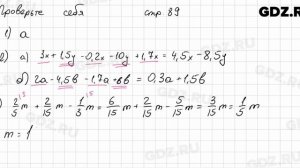 Проверьте себя стр. 89
GDZ.RU
1) а
2) а) 3x+1,5y-0,2x-10y+1,7x=4,5x-8,5y
б) 2a-4,5b-1,7a+6b=0,3a+1,5b
) 2/5 m + 2/15 m - 1/3 m = 6/15 m + 2/15 m - 5/15 m = 3/15 m = 1/5 m
m = 1
GDZ.RU